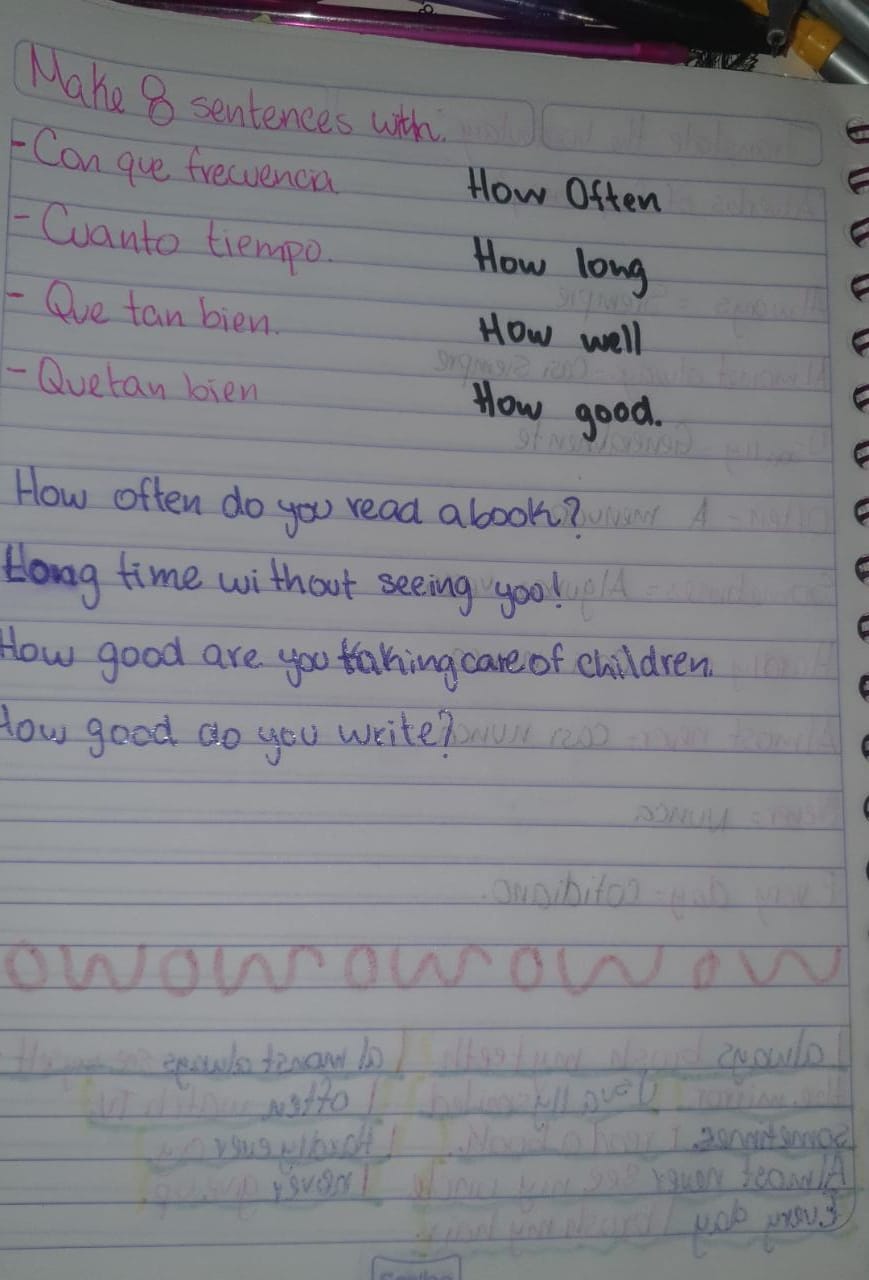 Make 8 sentences with.
- Con que frecuencia How Often
- Cuanto tiempo. How long
- Que tan bien. How well
- Que tan bien How good.
How often do you read a book?
time without seeing you!
How good are you taking care of children.
How good do you write?